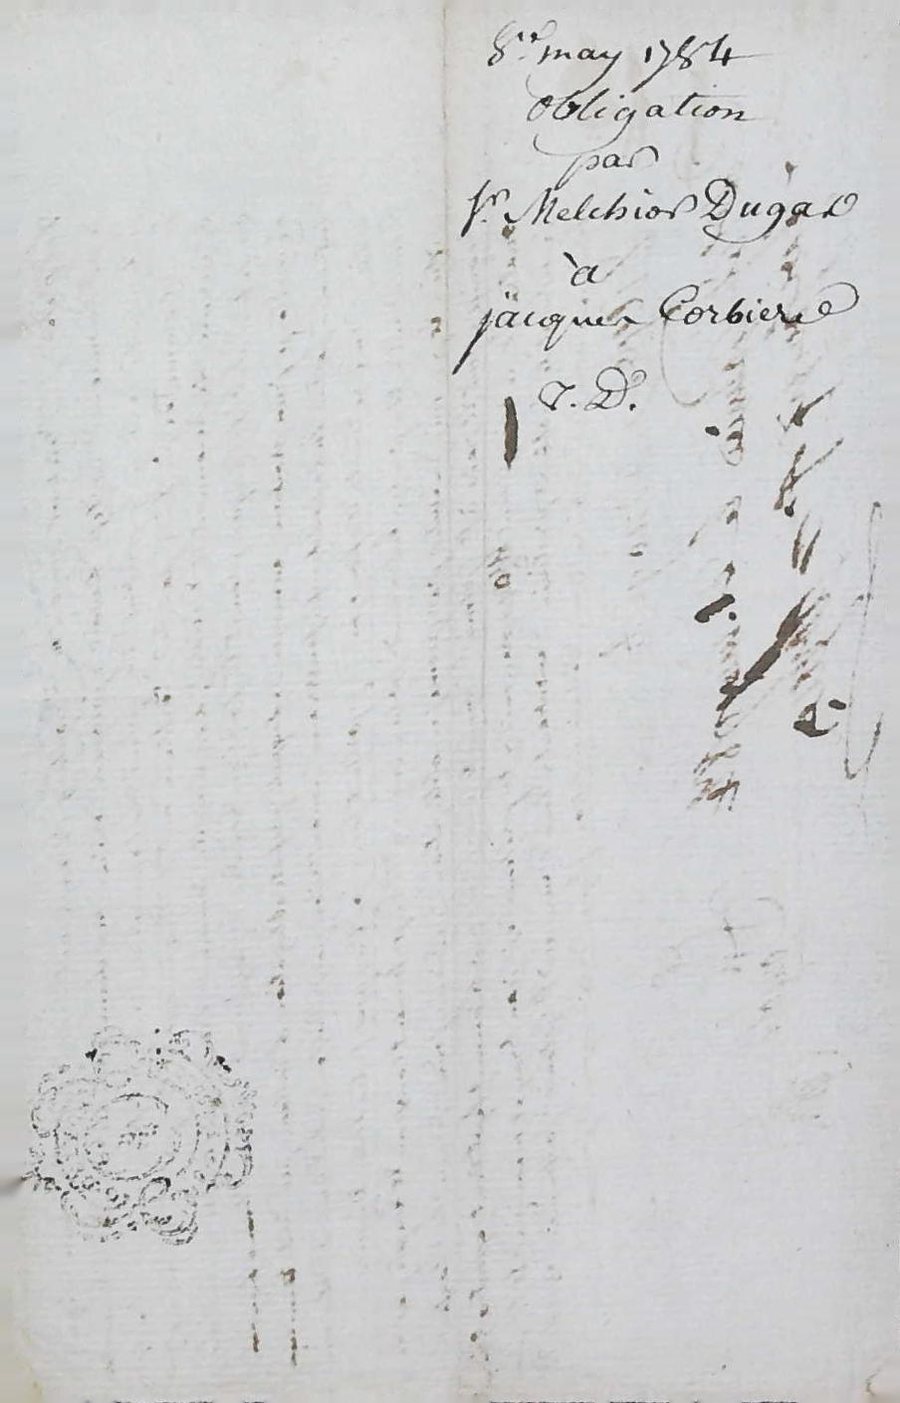 8.re may 1784
obligation
par
Sr. Melchior Dugas
à
jacques Corbiere
T. D.